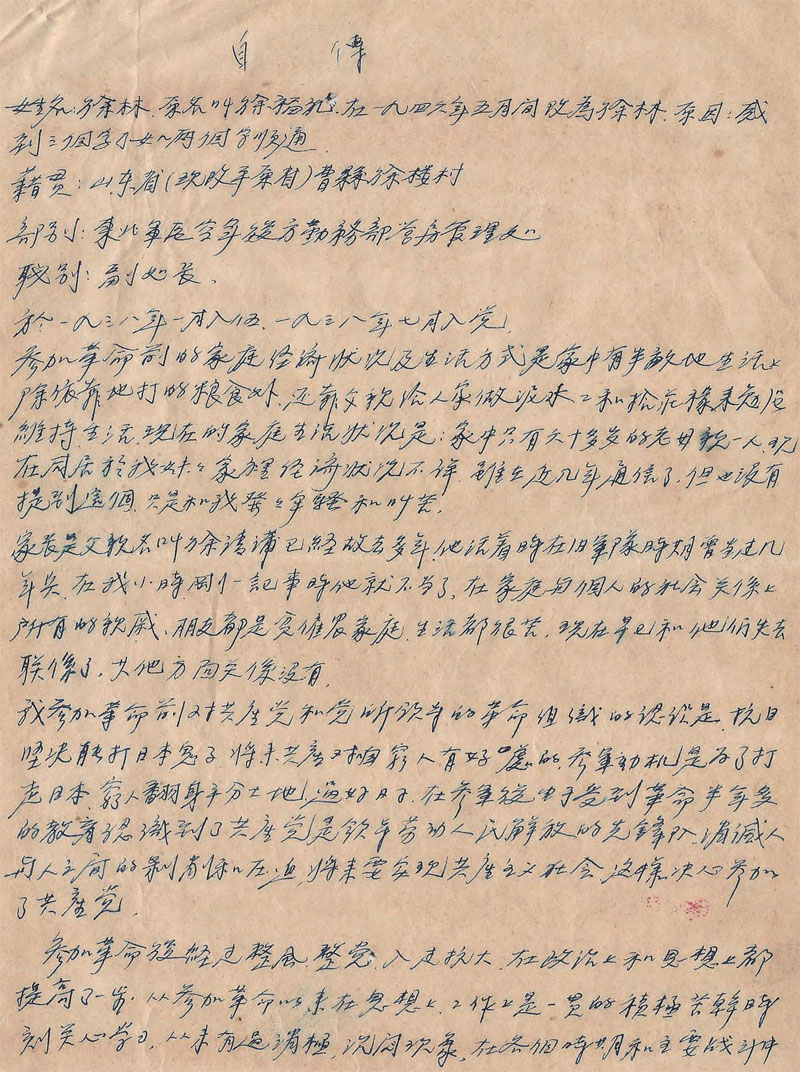 自 傳
姓名:徐林.原名叫徐福礼.在一九四六年五月間改為徐林.原因:感
到三個字不如兩個字順通.
籍貫:山东省(现改平原省)曹縣徐楼村
部別:東北軍区空軍後方勤務部营房管理处
职别:副处长.
於一九三八年一月入伍.一九三八年七月入党.
参加革命前的家庭经济状况及生活方式是家中有半畝地生活上
除依靠地打的粮食外.还靠父親给人家做泥水工和拾庄稼来勉強
維持生活.现在的家庭生活状况是:家中只有六十多岁的老母親一人.现
在同居於我妹々家裡经济状况不详.雖然近几年通信了.但也没有
提到這個.只是和我發々牢騷和叫苦.
家長是父親名叫徐清 已経故去多年.他活着時在旧軍隊時期曾当过几
年兵.在我小時剛一記事時他就不当了.在家庭与個人的社会关係上
所有的親戚、朋友都是贫僱农家庭.生活都很苦.现在早已和他們失去
联係了.其他方面关係没有.
我参加革命前对共產党和党所領导的革命组織的認识是.抗日
坚决能打日本鬼子.将来共產对咱窮人有好處的.参軍动机是为了打
走日本.窮人翻身平分土地.過好日子.在参軍後由于受到革命半年多
的教育認識到了共產党是領导劳动人民解放的先鋒队.消滅人
与人之间的剥削和压迫.将来要实现共產主义社会.这样决心参加
了共產党.
参加革命後経过整風.整党.入过抗大.在政治上和思想上都
提高了一步.从参加革命以来在思想上.工作上是一貫的積極苦幹時
刻关心学习.从未有過消極.沉闷现象.在各個時期和主要战斗中